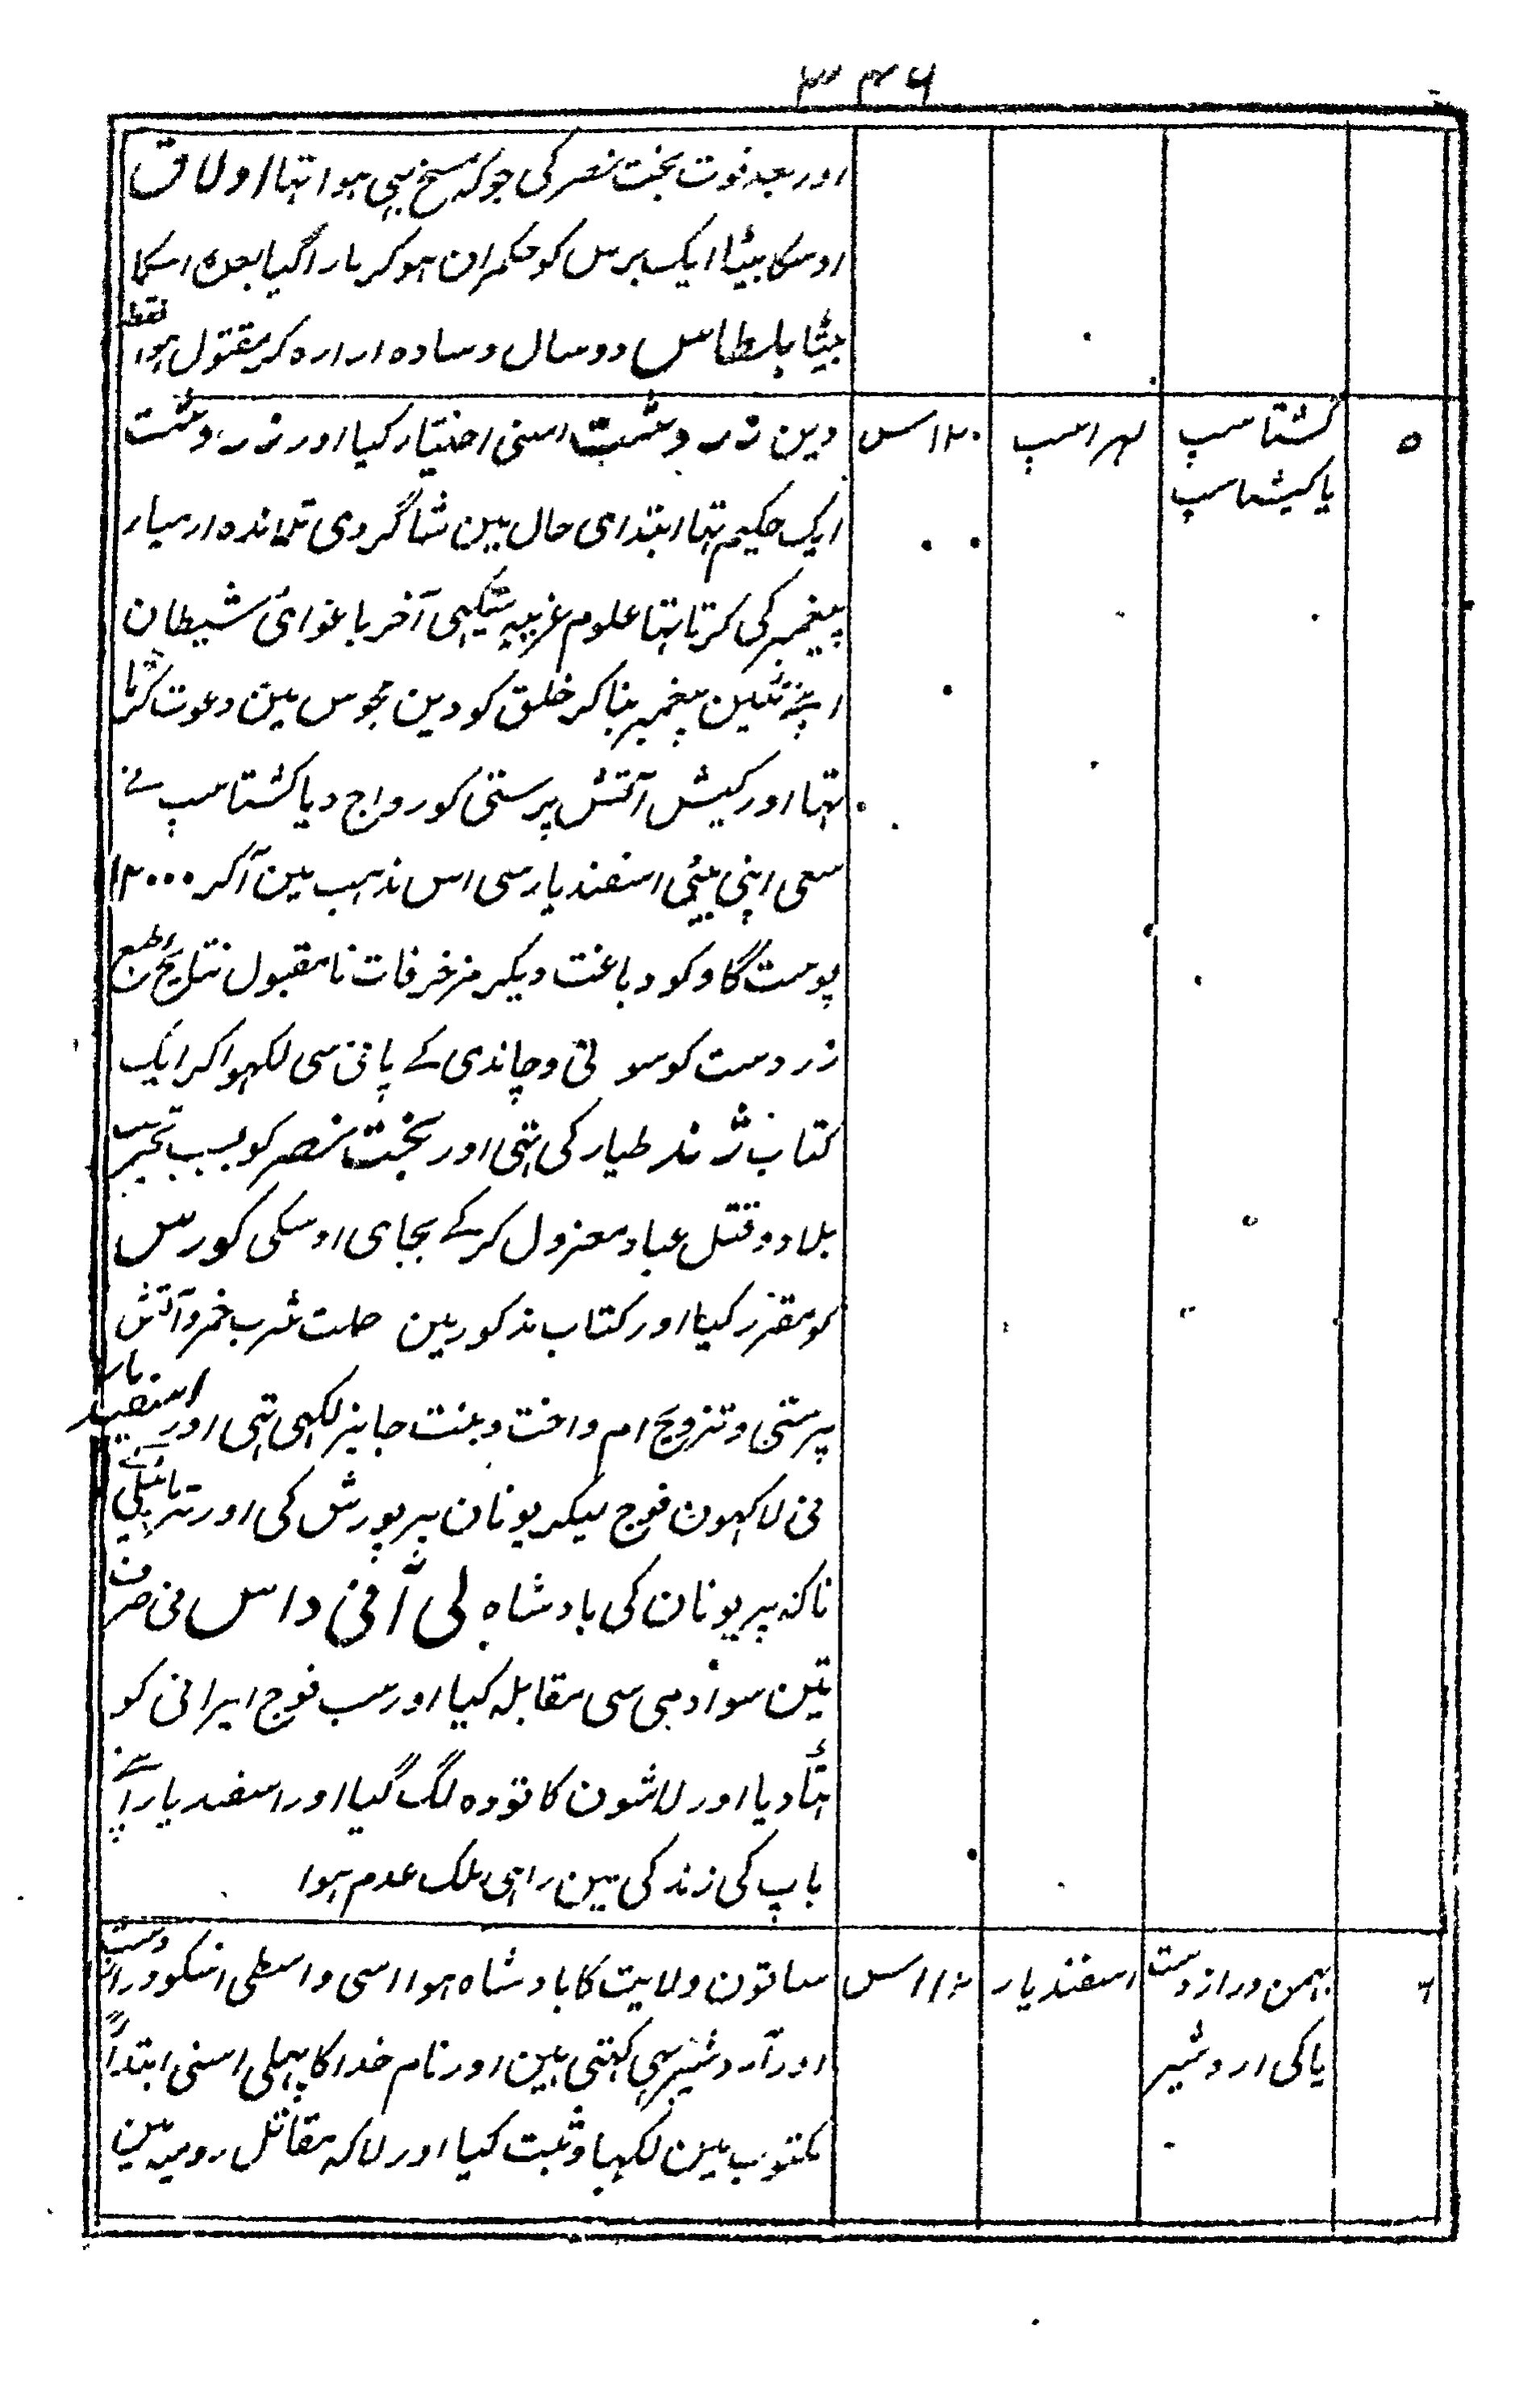 ۳۴۶
اور بعد فوت بخت نصر کی جو که مسخ بهی هوا تها اولاق
اوسکا بیٹا ایک برس کو حکمران هو کر مارا گیا بعده اسکا
بیٹا بلطاس دو سال وساده اراره کر مقتول هوا فقط
۵
گشتاسپ
یا کیشتاسپ
لهراسپ
۱۲۰س
دین زر دشت اسنی اختیار کیا اور زر دشت
ایک حکیم تها ابتدای حال مین شاگردی تلامذه ارمیار
پیغمبر کی کرتا تها علوم غریبه سیکهی آخر باغوائی شیطان
اپنے تئین پیغمبر بنا کر خلق کو دین مجوس مین دعوت کرتا
تها اور کیش آتش پرستی کو رواج دیا گشتاسپ نے
سعی اپنی بیٹی اسفندیار سی اس مذهب مین آکر ۱۲۰۰۰
پوست گاو کو دباغت دیکر مزخرفات نامقبول نتایج طبع
زردست کو سونی و چاندی کے پانی سی لکهوا کر ایک
کتاب ژند طیار کی تهی اور بخت نصر کو بسبب تخریب
بلاد و قتل عباد معزول کرکے بجای اوسکی کورس
کو مقرر کیا اور کتاب مذکور مین حلت شرب خمر و آتش
پرستی و تزویج ام و اخت و بنت جایز لکهی تهی اور اسفندیار
نی لاکهون فوج لیکر یونان پر یورش کی اور تهرماپلی کے
ناکه پر یونان کی بادشاه لی آنی داس نی صرف
تین سو آدمی سی مقابله کیا اور سب فوج ایرانی کو
هٹا دیا اور لاشون کا توده لگ گیا اور اسفندیار اپنے
باپ کی زندگی مین راهی ملک عدم هوا
۶
بهمن دراز دست
یا کی اردشیر
اسفندیار
۱۱۲س
ساتون ولایت کا بادشاه هوا اسی واسطی اسکو دراز دست
اور آردشیر بهی کهتی هین اور نام خدا کا پهلی اسنی ابتداءً
مکتوب مین لکها و ثبت کیا اور لاکه مقاتل رومیه مین